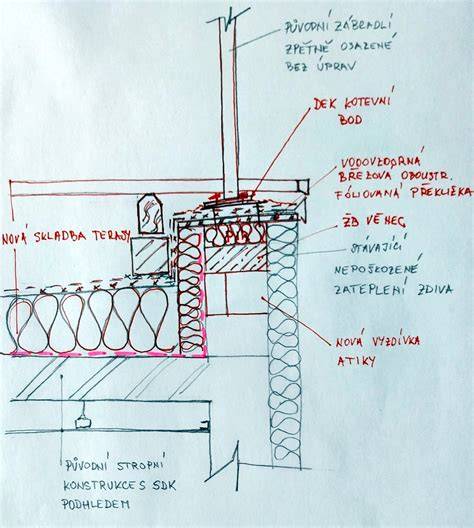 PŮVODNÍ ZÁBRADLÍ
ZPĚTNĚ OSAZENÉ
BEZ ÚPRAV
DEK KOTEVNÍ
BOD
VODOVZDORNÁ
BŘEZOVÁ OBOUSTR.
FÓLIOVANÁ PŘEKLIŽKA
ŽB VĚNEC
STÁVAJÍCÍ
NEPOŠKOZENÉ
ZATEPLENÍ ZDIVA
NOVÁ SKLADBA TERASY
PIR
NOVÁ VYZDÍVKA
ATIKY
PŮVODNÍ STROPNÍ
KONSTRUKCE S SDK
PODHLEDEM